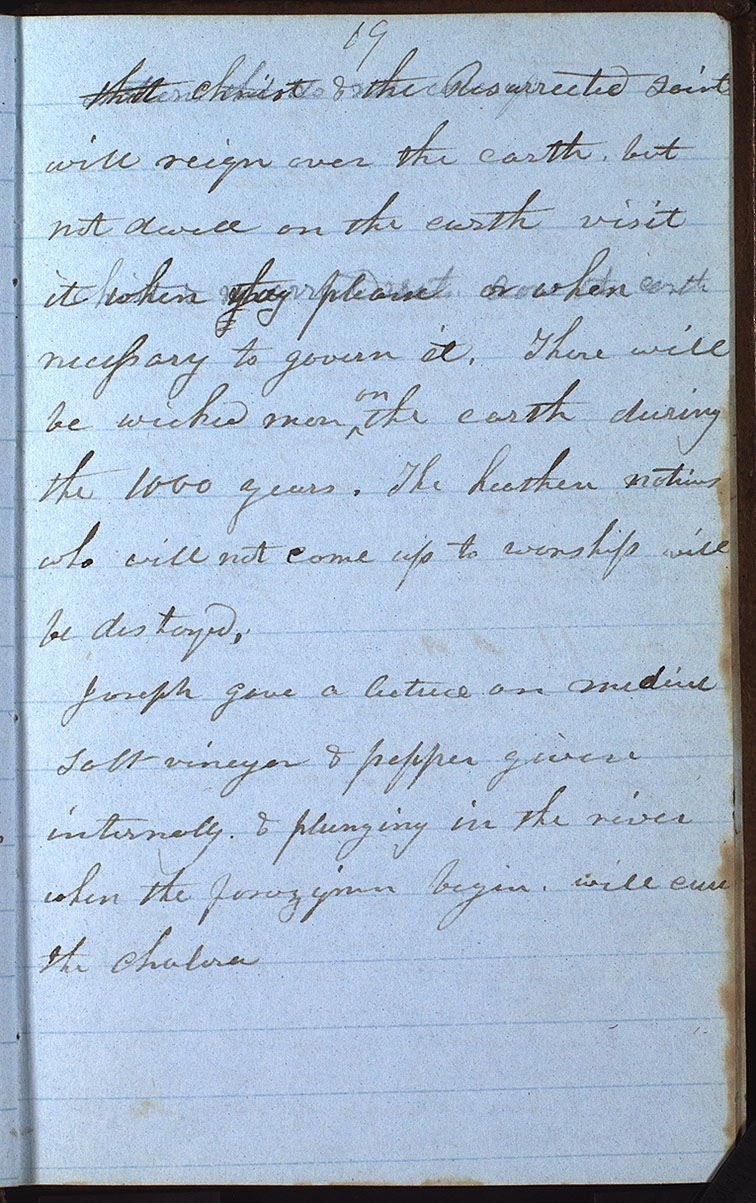 19
that christ & the Resurrected Saint
will reign over the earth. but
not dwell on the earth visit
it when they pleas or when
necessary to govern it. There will
be wicked men on the earth during
the 1000 years. The heathen nations
who will not come up to worship will
be distoyed.
Joseph gave a lecture on medicine
Salt vineger & pepper given
internally. & plunging in the river
when the begin. will cure
the cholera